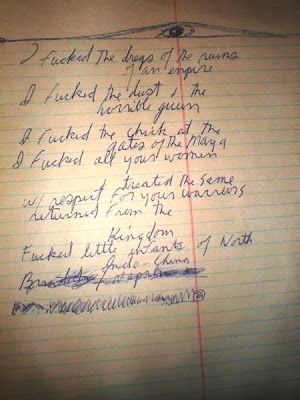 I Fucked the dregs of the ruins
of an empire
I Fucked the dust & the
horrible queen
I Fucked the chick at the
gates of the Maya
I Fucked all your women
treated the same
w/ respect for your warriors
returned from the
Kingdom
Fucked little infants of North
Indo-China